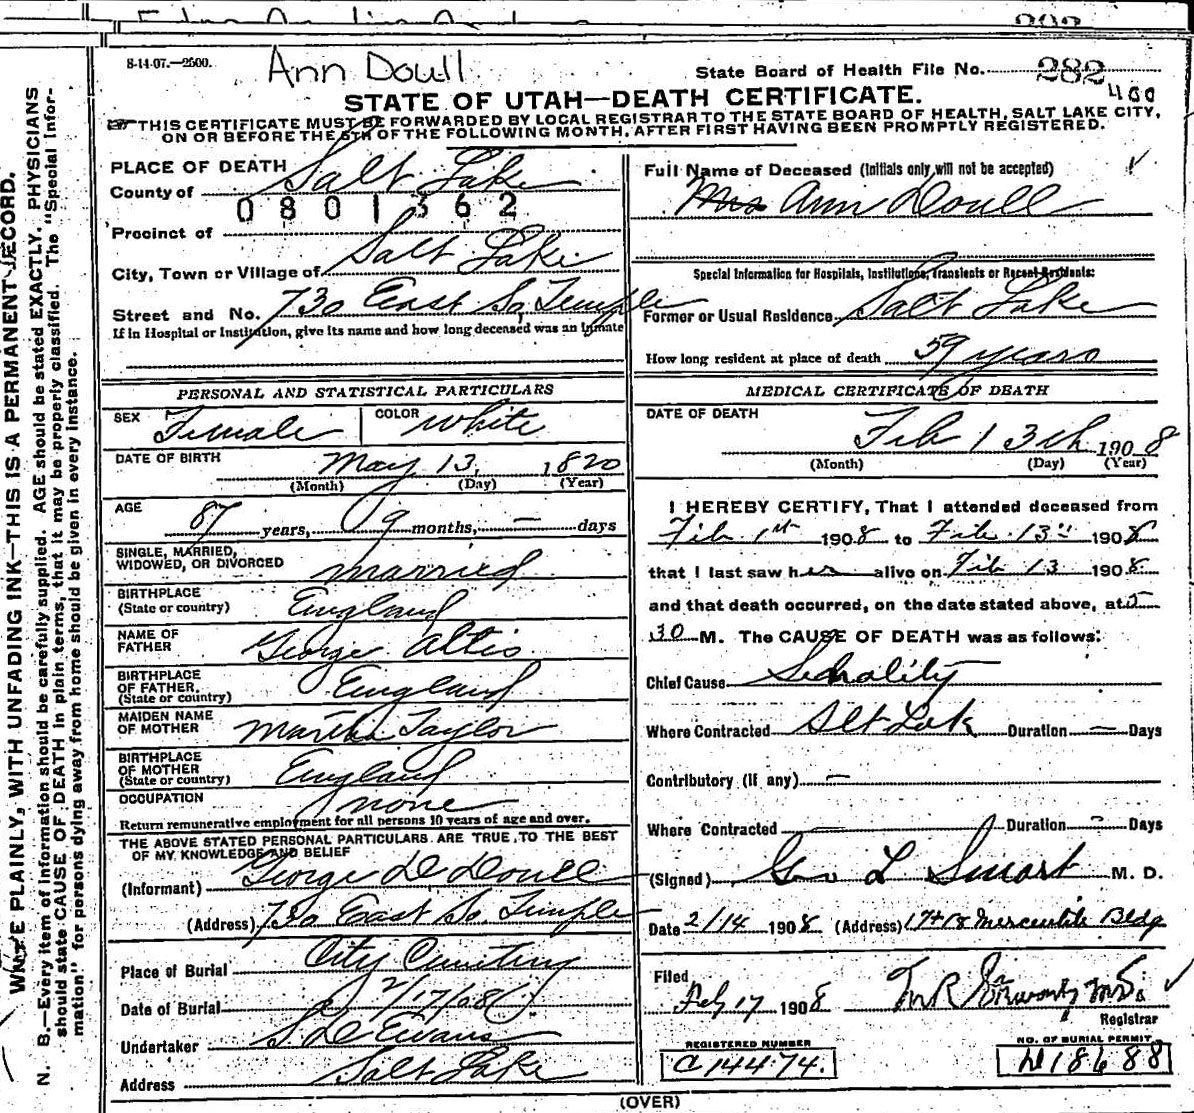 8-14-07.—2500.
Ann Doull
State Board of Health File No. 282
400
STATE OF UTAH—DEATH CERTIFICATE.
THIS CERTIFICATE MUST BE FORWARDED BY LOCAL REGISTRAR TO THE STATE BOARD OF HEALTH, SALT LAKE CITY,
ON OR BEFORE THE 5TH OF THE FOLLOWING MONTH, AFTER FIRST HAVING BEEN PROMPTLY REGISTERED.
PLACE OF DEATH
County of Salt Lake
0801362
Precinct of
City, Town or Village of Salt Lake
Street and No. 730 East So. Temple
If in Hospital or Institution, give its name and how long deceased was an inmate
Full Name of Deceased (Initials only will not be accepted)
Mrs Ann Doull
Special Information for Hospitals, Institutions, Transients or Recent Residents:
Former or Usual Residence Salt Lake
How long resident at place of death 59 years
PERSONAL AND STATISTICAL PARTICULARS
SEX Female COLOR White
DATE OF BIRTH May 13, 1820
(Month) (Day) (Year)
AGE 87 years, 9 months, — days
SINGLE, MARRIED,
WIDOWED, OR DIVORCED married
BIRTHPLACE
(State or country) England
NAME OF
FATHER George Altis
BIRTHPLACE
OF FATHER,
(State or country) England
MAIDEN NAME
OF MOTHER Martha Taylor
BIRTHPLACE
OF MOTHER
(State or country) England
OCCUPATION none
Return remunerative employment for all persons 10 years of age and over.
THE ABOVE STATED PERSONAL PARTICULARS ARE TRUE, TO THE BEST
OF MY KNOWLEDGE AND BELIEF
(Informant) George D Doull
(Address) 730 East So. Temple
Place of Burial City Cemetery
Date of Burial 2/17/08
Undertaker S. D Evans
Address Salt Lake
MEDICAL CERTIFICATE OF DEATH
DATE OF DEATH
Feb 13th 1908
(Month) (Day) (Year)
I HEREBY CERTIFY, That I attended deceased from
Feb 1st 1908 to Feb. 13" 1908
that I last saw her alive on Feb 13 1908
and that death occurred, on the date stated above, at 5
30 M. The CAUSE OF DEATH was as follows:
Chief Cause Senality
Where Contracted Slt Lak Duration — Days
Contributory (if any) —
Where Contracted — Duration — Days
(Signed) Geo L Smart M. D.
Date 2/14 1908 (Address) 17+18 Mercantile Bldg
Filed
Feby 17 1908
M.D.
Registrar
REGISTERED NUMBER
C14474.
NO. OF BURIAL PERMIT
D18688
(OVER)
WRITE PLAINLY, WITH UNFADING INK—THIS IS A PERMANENT RECORD.
N. B.—Every item of information should be carefully supplied. AGE should be stated EXACTLY. PHYSICIANS
should state CAUSE OF DEATH in plain terms, that it may be properly classified. The "Special Infor-
mation" for persons dying away from home should be given in every instance.